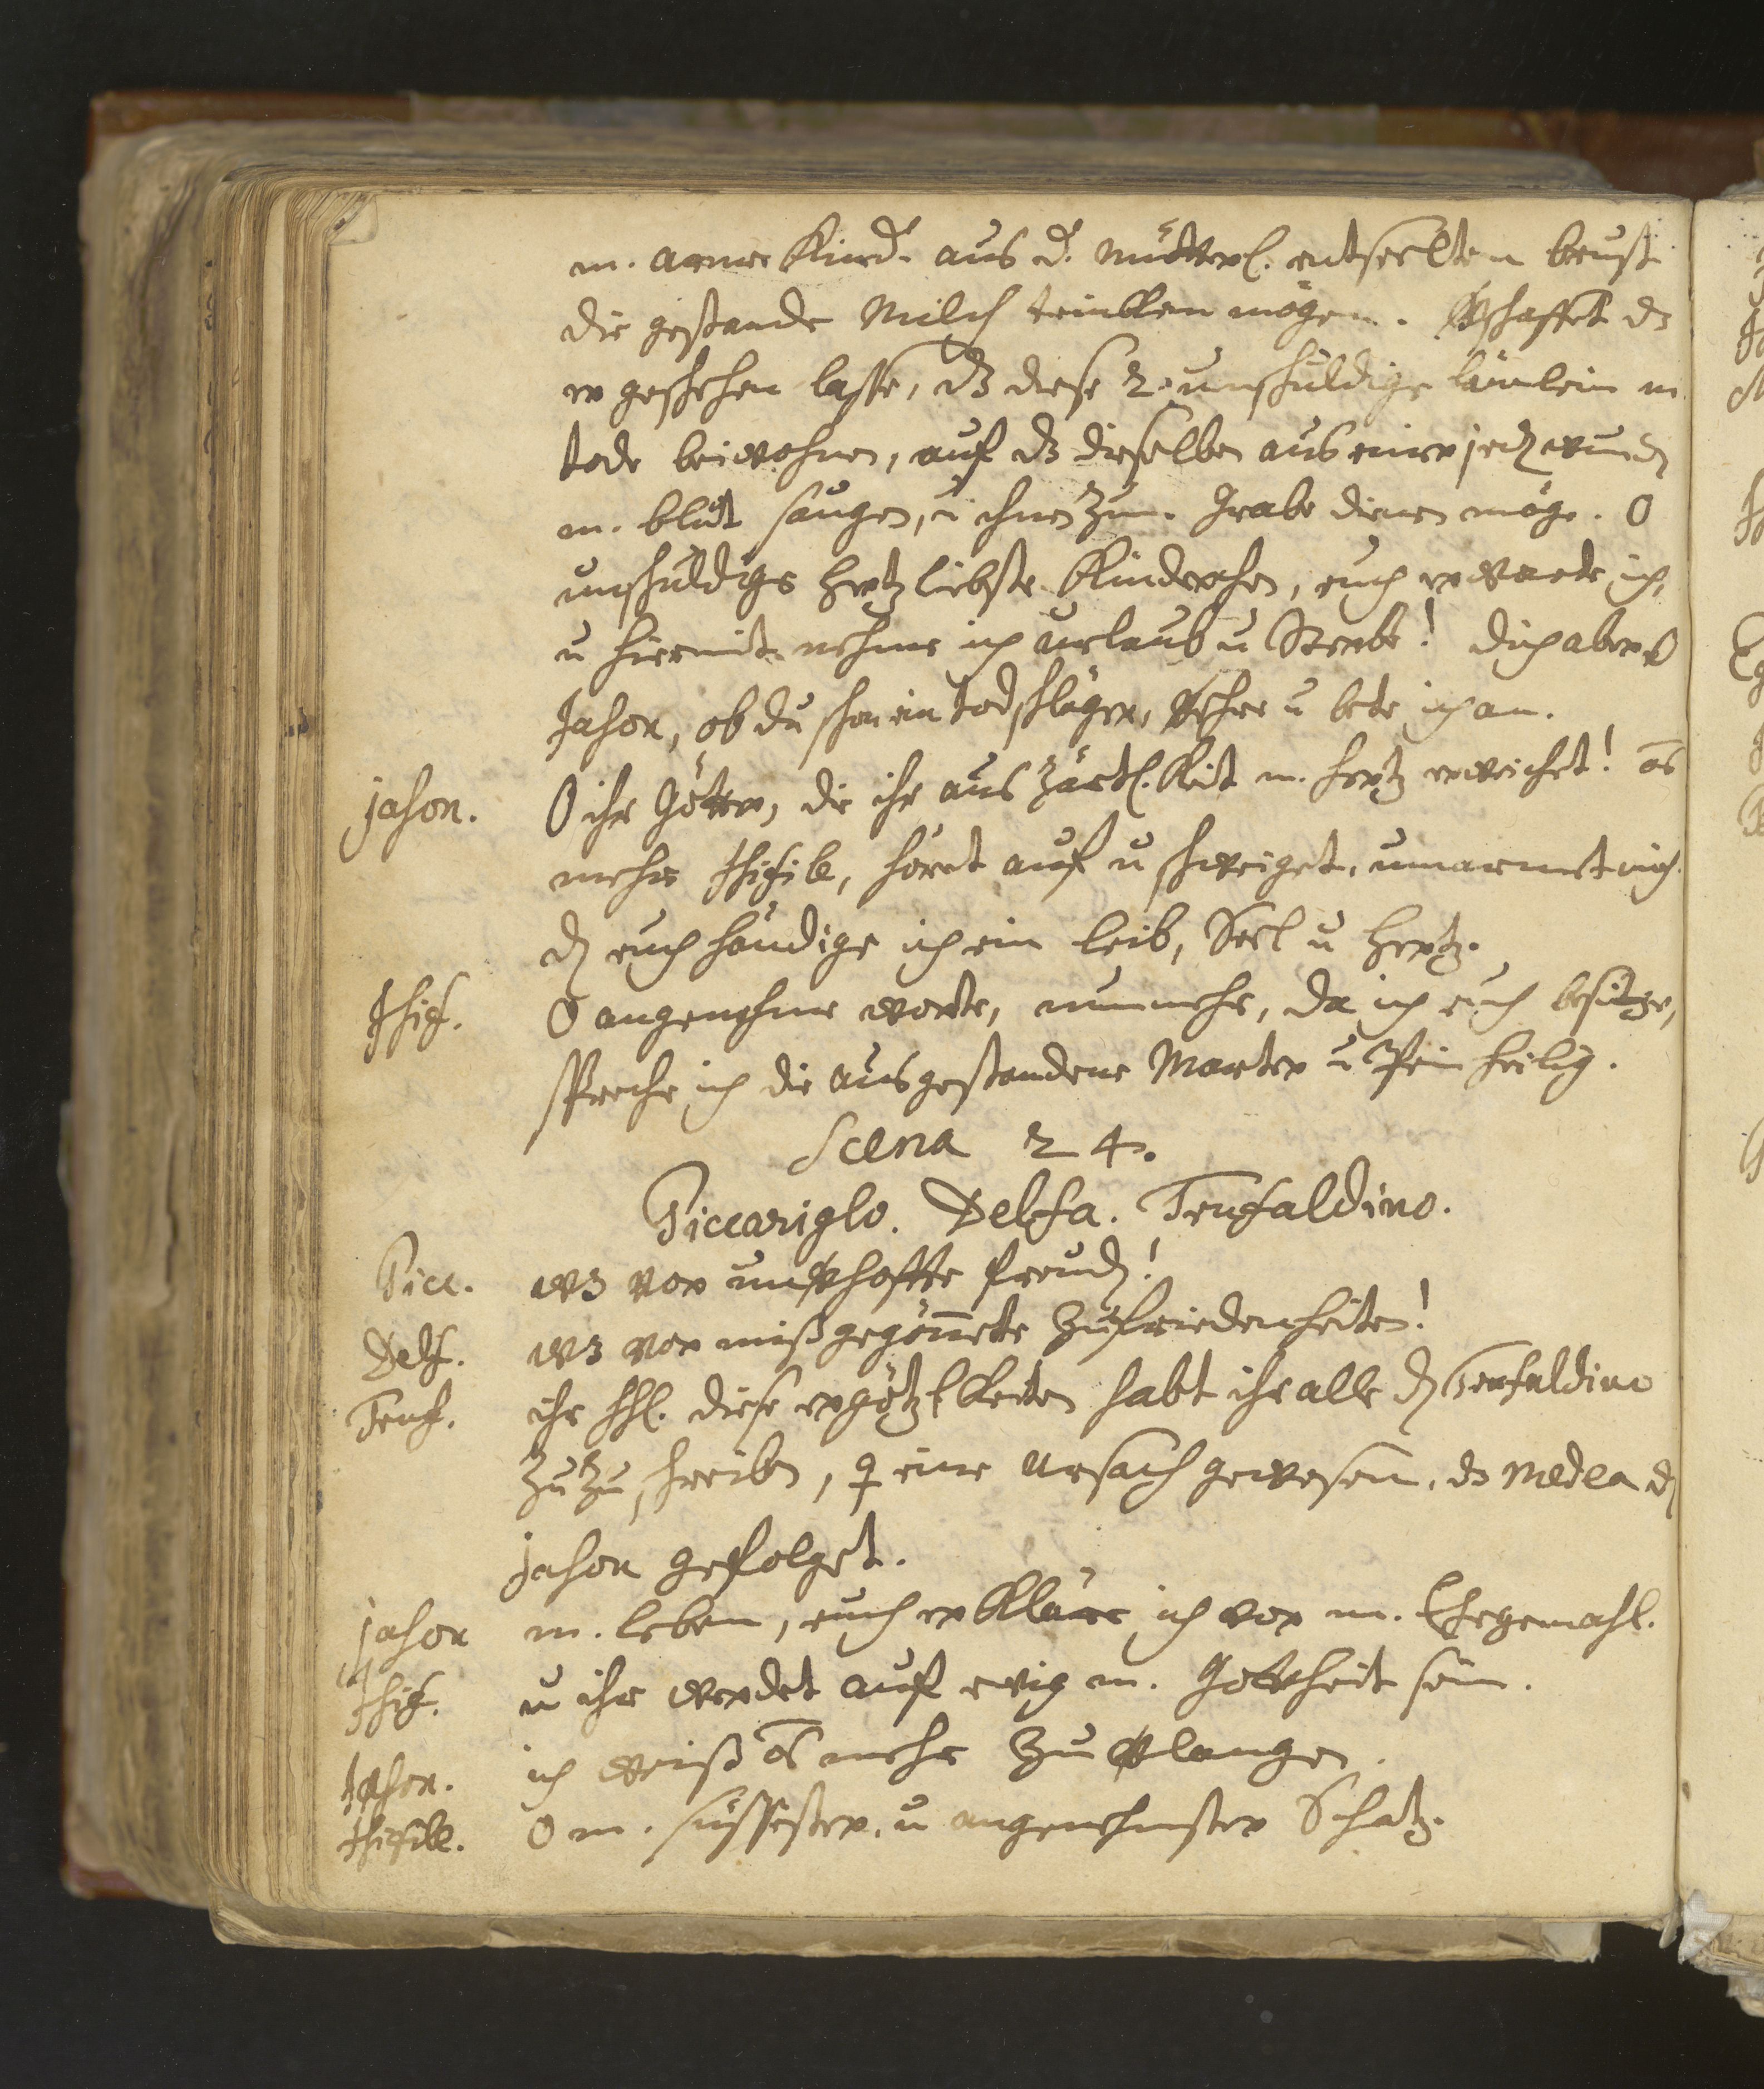 m. arme Kind. aus d. mütterl. entseelten brust
die gestande Milch trincken mögen. Verschaffet dz
er geschehen lasse, dz diese 2. unschuldige lämlein m
tode beiwohnen, auf dz dieselben aus einer jeden wunden
m. blut saugen, u ihnen zum Grabe dienen möge. O
unschuldige hertzliebste Kinderchen, euch erwarte ich,
u hiermit nehme ich urlaub u Sterbe! dich aber o
Jason, ob du schon ein todschläger, verehre u bete ich an.
Jason. O ihr Götter, die ihr aus Zärtl.keit m. hertz erweichet! 
mehr Isifile, höret auf u schweiget, umarmet mich
den euch händige ich ein leib, Seel u hertz.
Isif. O angenehme worte, nunmehr, da ich euch besitze,
spreche ich die ausgestandene Marter u Pein heilig.
Scena 24.
Piccariglo. Delfa. Trufaldino.
Picc. wz vor unverhoffte freuden!
Delf. wz vor mißgegönnete Zufriedenheiten!
Truf. ihr hhl. diese ergötzl.keiten habt ihr alle den Trufaldino
zuzuschreiben, eine ursach gewesen, dz Medea den
Jason gefolget.
Jason m. leben, euch erkläre ich vor m. Ehegemahl.
Isif. u ihr werdet auf ewig m. Gottheit sein.
Jason. ich weiß mehr zu verlangen.
Isifile. O m. süssester, u angenehmster Schatz.